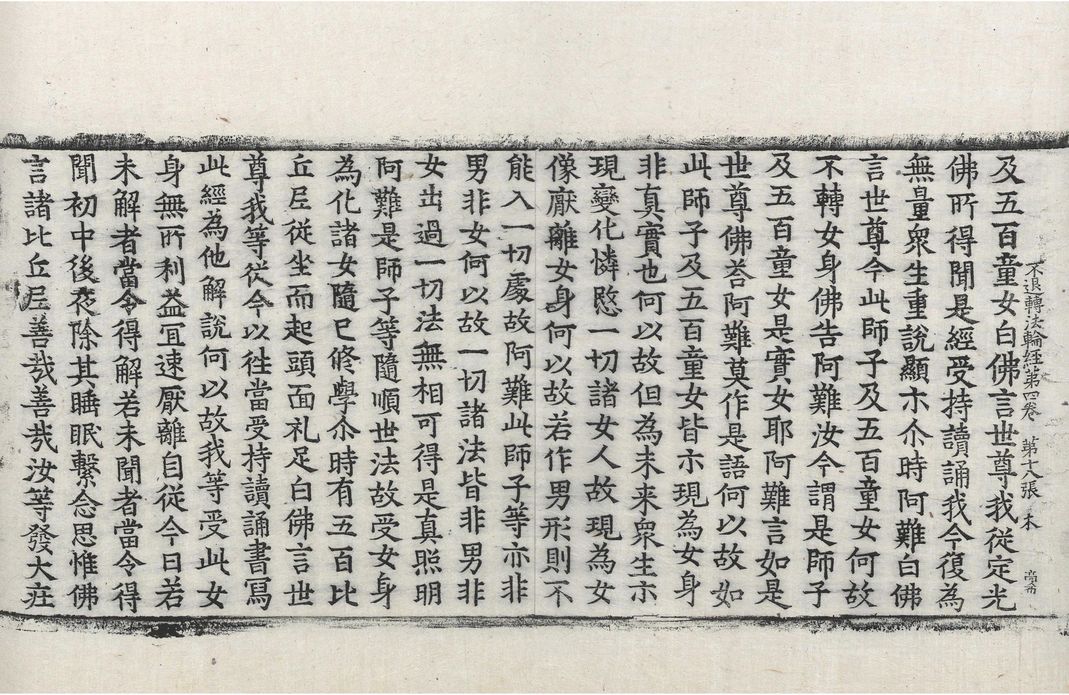 不退轉法輪經第四卷 第十八張 木
及五百童女白佛言世尊我從定光
佛所得聞是經受持讀誦我今復為
無量衆生重說顯示尒時阿難白佛
言世尊今此師子及五百童女何故
不轉女身佛告阿難汝今謂是師子
及五百童女是實女耶阿難言如是
世尊佛荅阿難莫作是語何以故如
此師子及五百童女皆示現為女身
非真實也何以故但為未来衆生示
現變化憐愍一切諸女人故現為女
像厭離女身何以故若作男形則不
能入一切處故阿難此師子等亦非
男非女何以故一切諸法皆非男非
女出過一切法無相可得是真照明
阿難是師子等隨順世法故受女身
為化諸女隨已修學尒時有五百比
丘尼從坐而起頭面礼足白佛言世
尊我等從今以徃當受持讀誦書寫
此經為他解說何以故我等受此女
身無所利益冝速厭離自從今日若
未解者當令得解若未聞者當令得
聞初中後夜除其睡眠繋念思惟佛
言諸比丘尼善哉善哉汝等發大莊